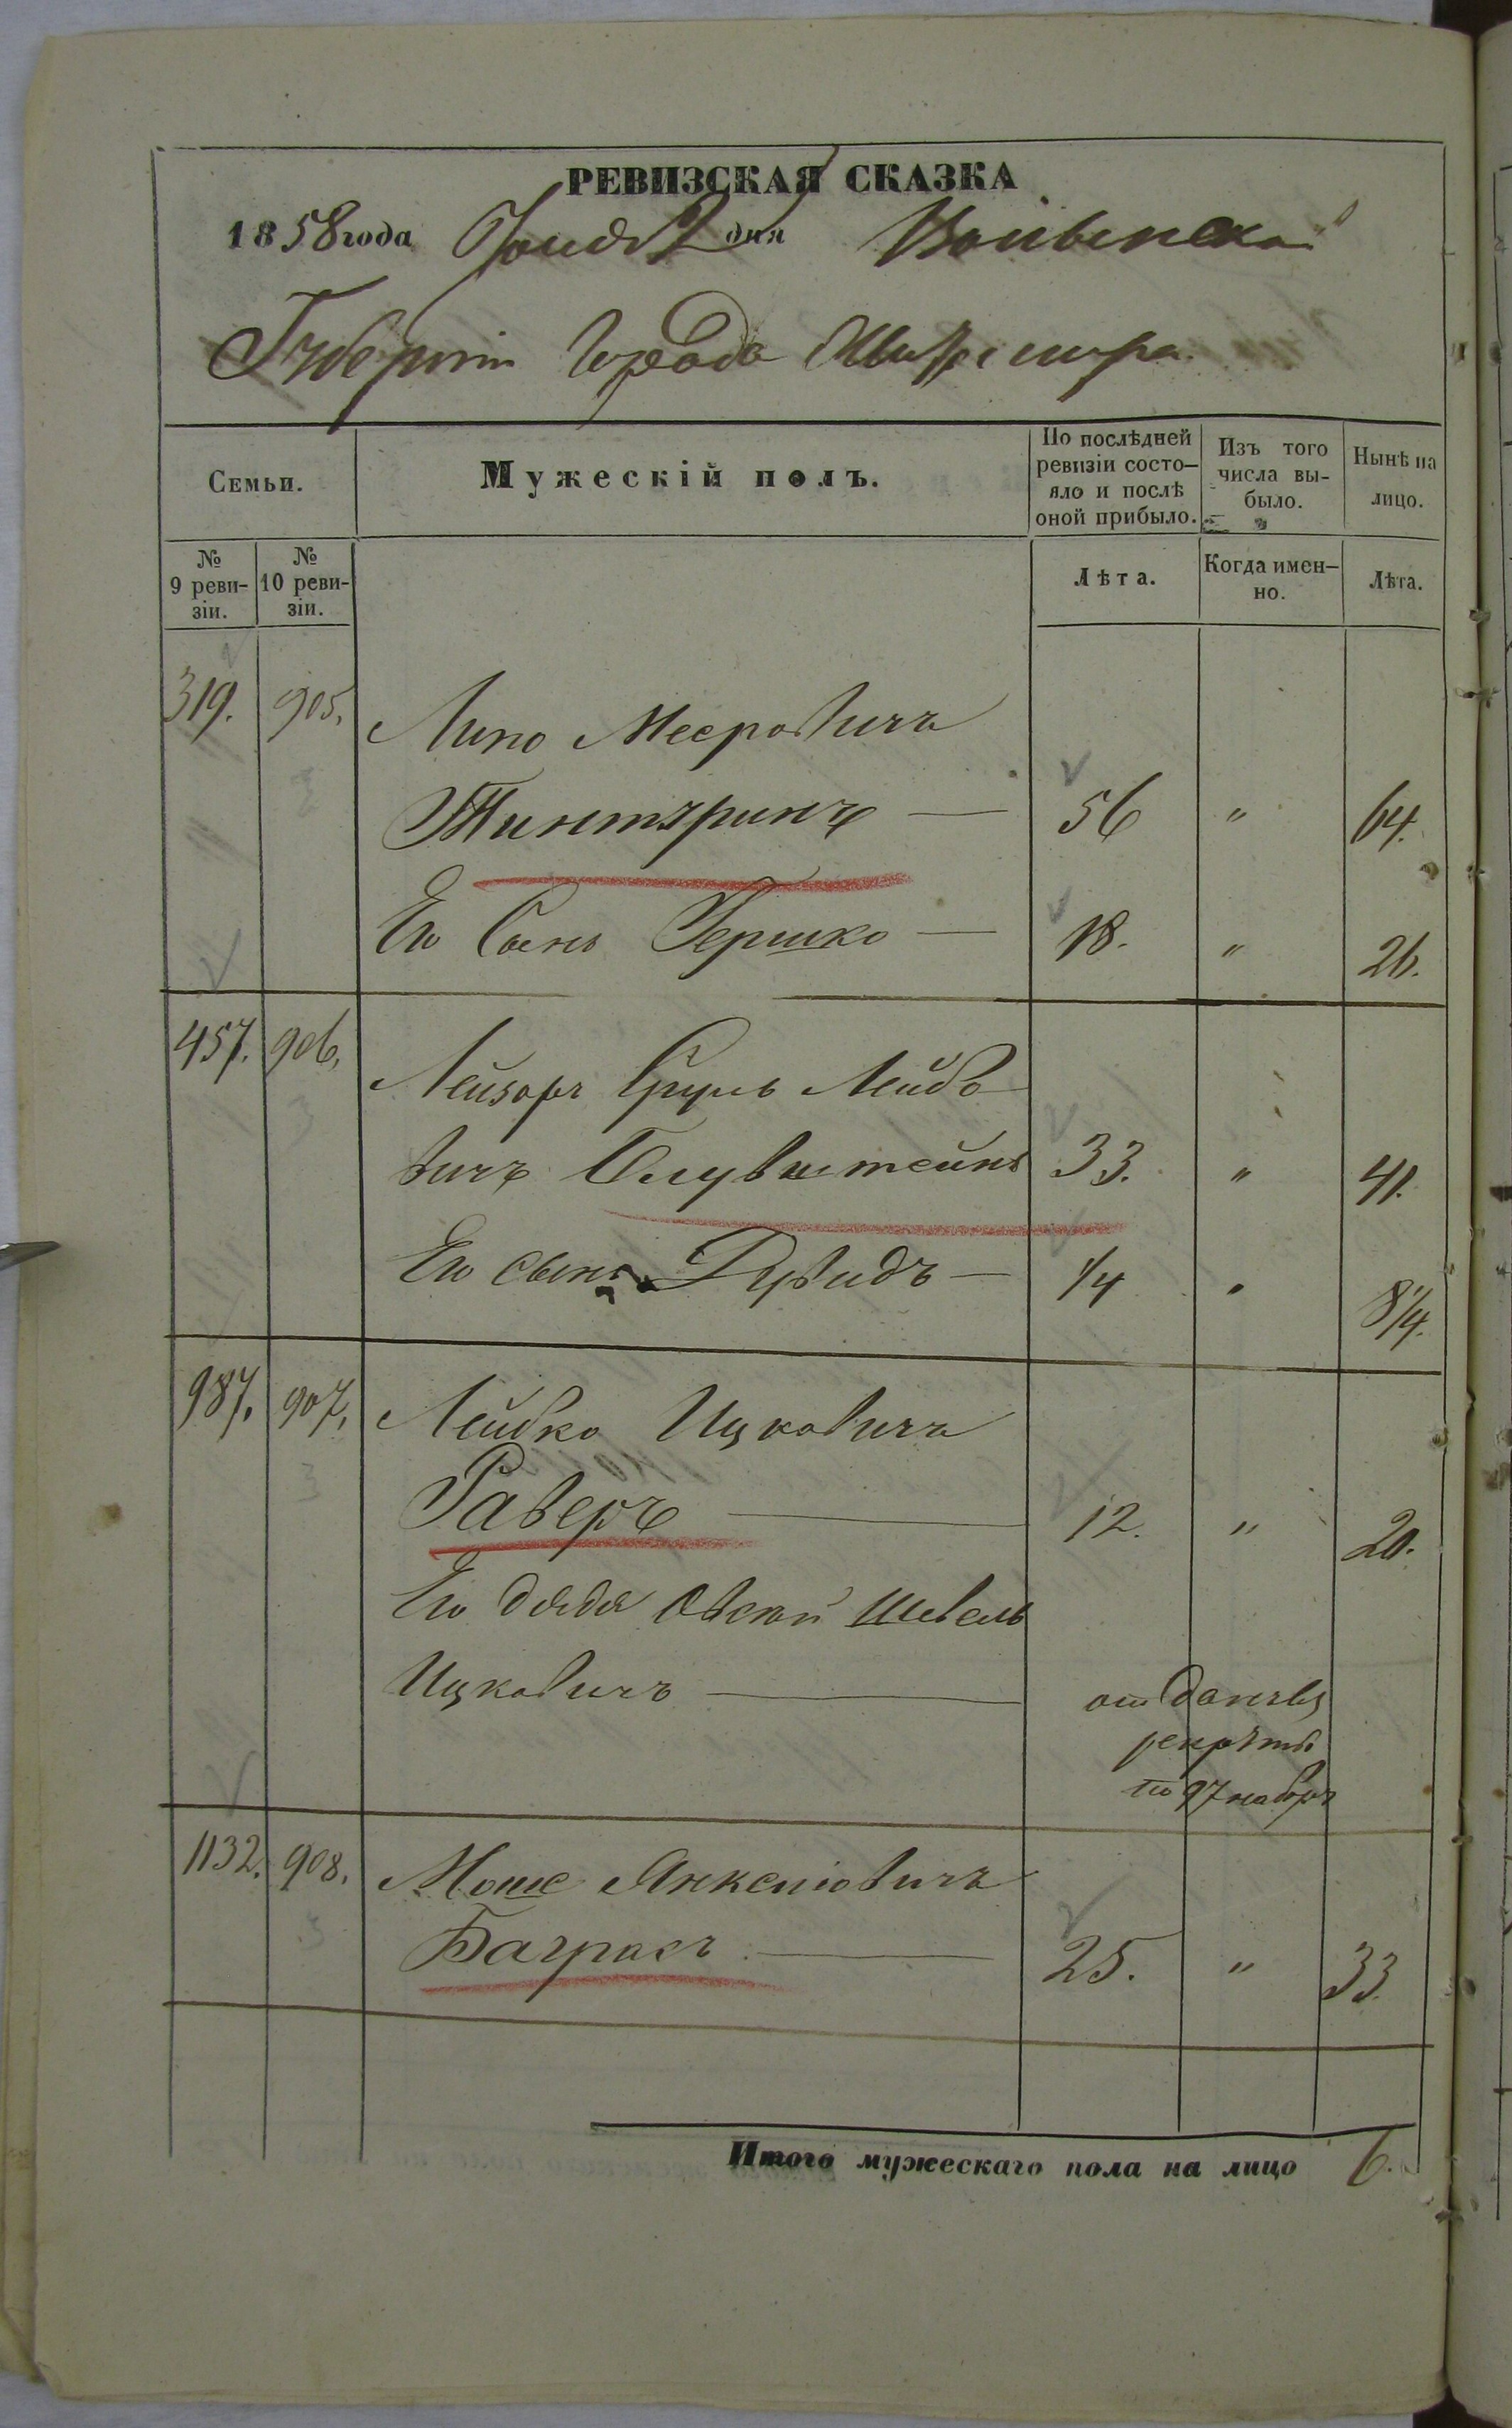 РЕВИЗСКАЯ СКАЗКА
1858 года Іюня 2 дня Волынской
Губерніи Города Житомира
Семьи.
Мужескій полъ.
По послѣдней ревизіи состо-
яло и послѣ оной прибыло.
Изъ того числа вы-
было.
Нынѣ на лицо.
№ 9 реви-
зіи.
№ 10 реви-
зіи.
Лѣта.
Когда имен-
но.
Лѣта.
319. 905. Липо Мееровичъ
56 " 64.
Его Сынъ Гершко — 18. " 26.
457. 906. Лейзоръ Сруль Лейбо
вичъ Блувштейнъ 33. " 41.
Его сынъ Дувидъ — 1/4 " 8 1/4.
987. 907. Лейбко Ицковичъ
Раверъ — 12. " 20.
Его дядя Овсей Шевель
Ицковичъ — отданъ въ
рекруты
по 97 наборъ
1132. 908. Моше Янкелювичъ
25. " 33
Итого мужескаго пола на лицо 6.